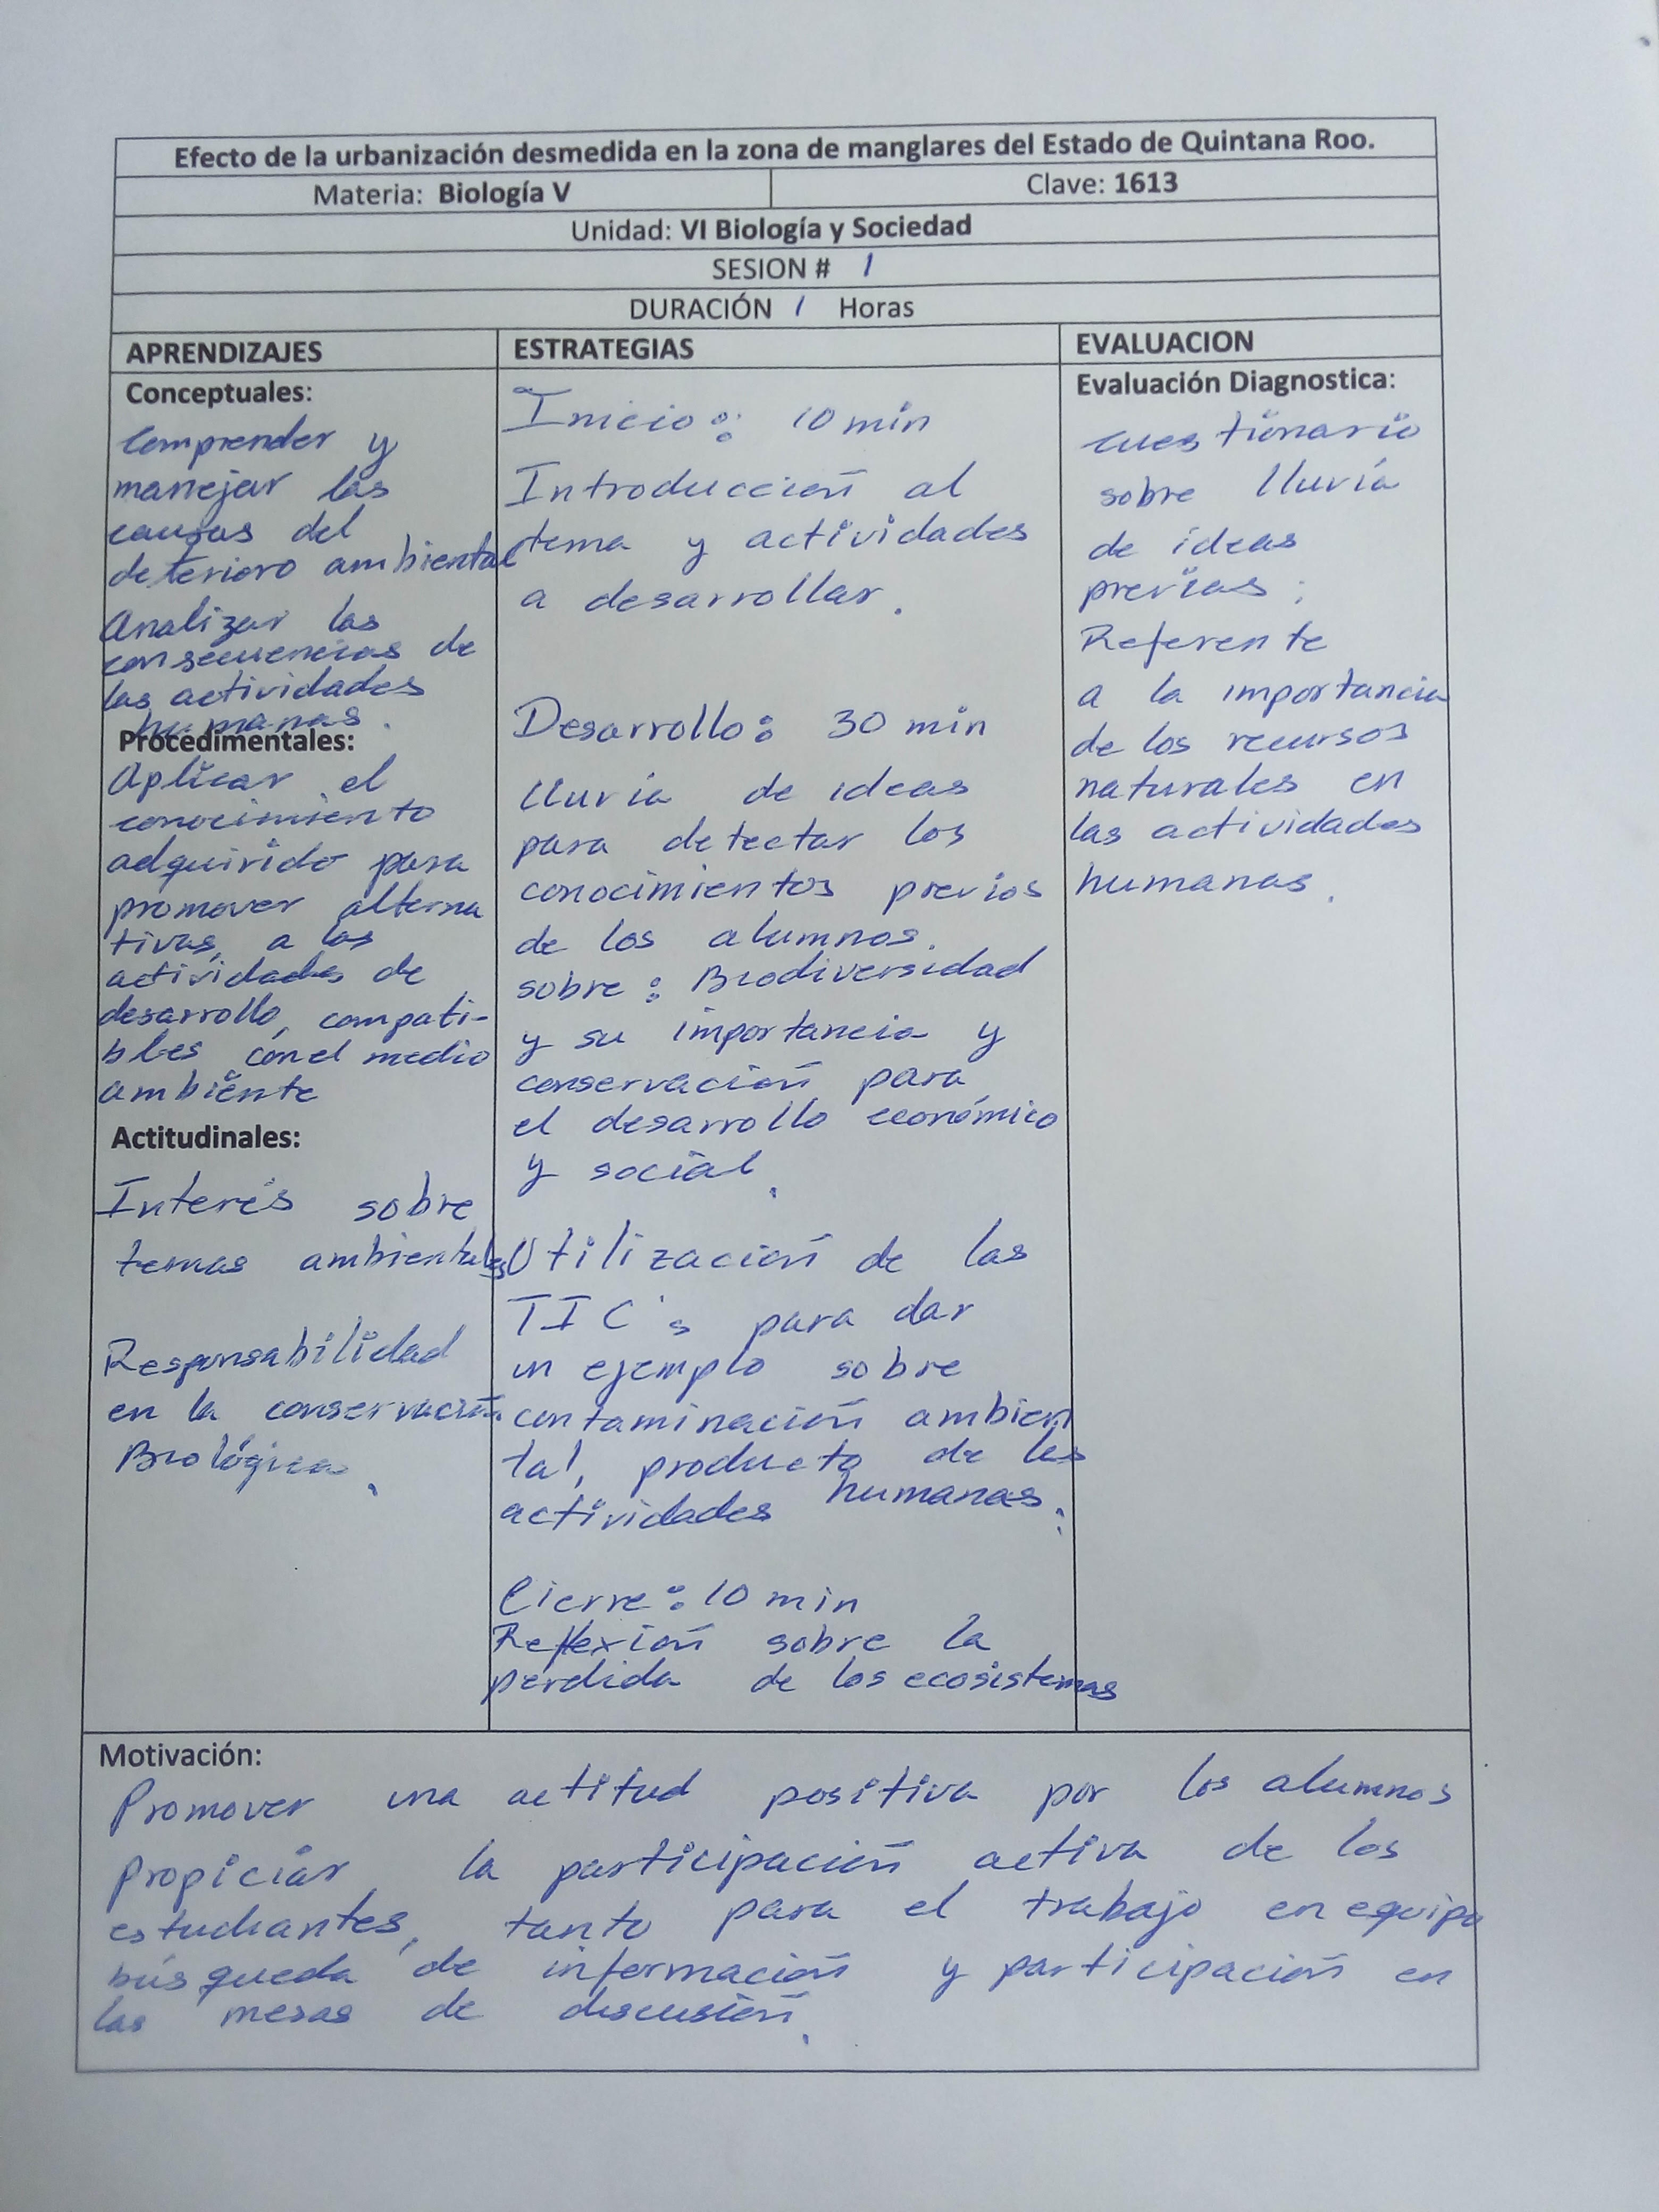 Efecto de la urbanización desmedida en la zona de manglares del Estado de Quintana Roo.
Materia: Biología V
Clave: 1613
Unidad: VI Biología y Sociedad
SESION # 1
DURACIÓN 1 Horas
APRENDIZAJES
Conceptuales:
Comprender y
manejar las
causas del
deterioro ambiental
Analizar las
consecuencias de
las actividades
humanas.
Procedimentales:
Aplicar el
conocimiento
adquirido para
promover alterna
tivas, a las
actividades de
desarrollo, compati-
bles con el medio
ambiente
Actitudinales:
Interés sobre
temas ambientales
Responsabilidad
en la conservación
Biológica.
ESTRATEGIAS
Inicio: 10 min
Introducción al
tema y actividades
a desarrollar.
Desarrollo: 30 min
lluvia de ideas
para detectar los
conocimientos previos
de los alumnos.
sobre: Biodiversidad
y su importancia y
conservación para
el desarrollo económico
y social.
Utilización de las
TIC's para dar
un ejemplo sobre
contaminación ambien
tal, producto de las
actividades humanas.
Cierre: 10 min
Reflexión sobre la
perdida de los ecosistemas
EVALUACION
Evaluación Diagnostica:
cuestionario
sobre lluvía
de ideas
previas;
Referente
a la importancia
de los recursos
naturales en
las actividades
humanas.
Motivación:
Promover una actitud positiva por los alumnos
Propiciar la participación activa de los
estudiantes, tanto para el trabajo en equipo
búsqueda de información y participación en
las mesas de discusión.